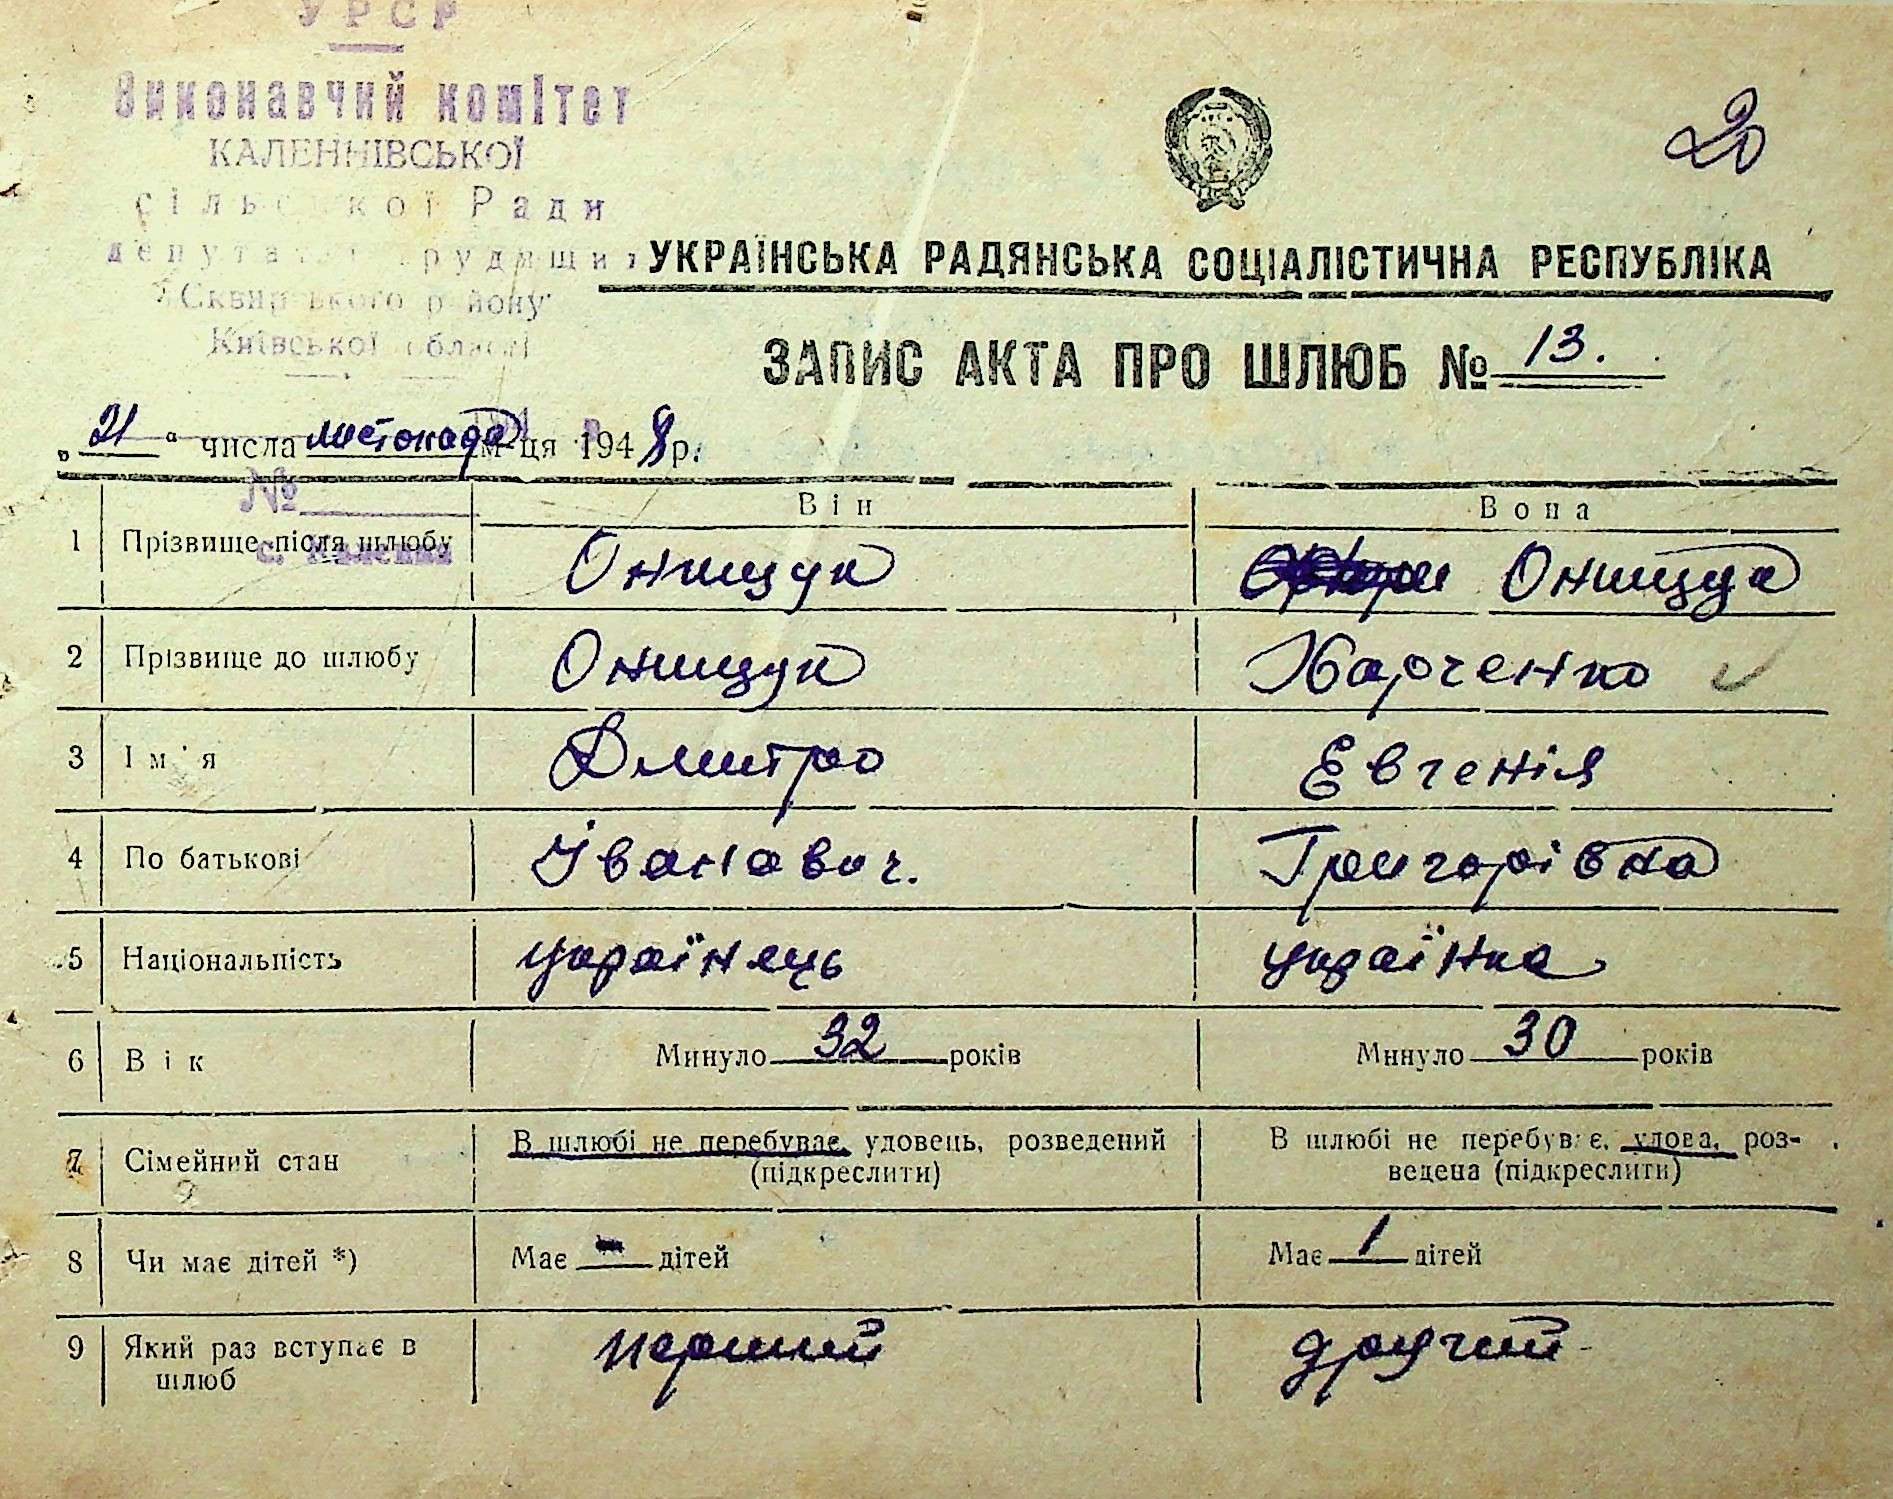 УРСР
Виконавчий комітет
КАЛЕННІВСЬКОЇ
сільської Ради
депутатів трудящих
Сквирського району
Київської області
20
УКРАЇНСЬКА РАДЯНСЬКА СОЦІАЛІСТИЧНА РЕСПУБЛІКА
ЗАПИС АКТА ПРО ШЛЮБ № 13.
„21“ числа листопада м-ця 1948 р.
№
Він Вона
1 Прізвище після шлюбу Онищук Онищук
с. Каленна
2 Прізвище до шлюбу Онищук Харченко
3 Ім'я Дмитро Евгенія
4 По батькові Іванович. Григорівна
5 Національність українець українка
6 Вік Минуло 32 років Минуло 30 років
7 Сімейний стан В шлюбі не перебуває, удовець, розведений В шлюбі не перебуває, удова, роз-
(підкреслити) ведена (підкреслити)
8 Чи має дітей *) Має - дітей Має 1 дітей
9 Який раз вступає в перший другий
шлюб